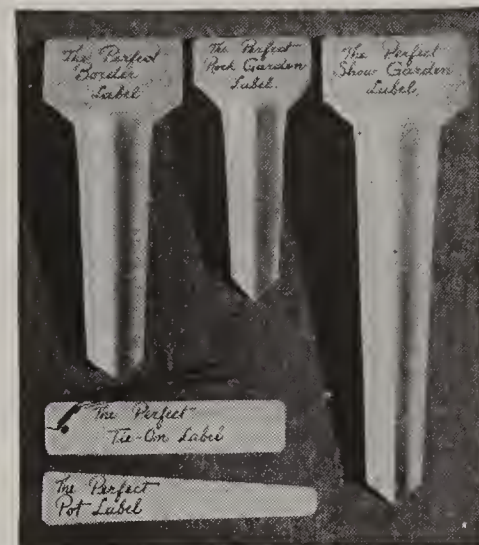 The Perfect
Border
Label
The Perfect
Rock Garden
Label.
The Perfect
Show Garden
Label.
The Perfect
Tie-On Label
The Perfect
Pot Label